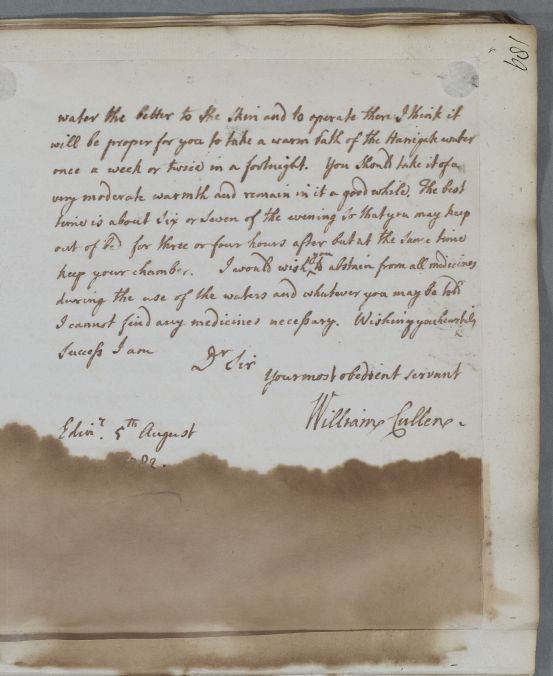 189
water the better to the skin and to operate there I think it
will be proper for you to take a warm bath of the Harrigate water
once a week or twice in a fortnight. You should take it of a
very moderate warmth and remain in it a good while. The best
time is about Six or Seven of the evening so that you may keep
out of bed for three or four hours after but at the same time
keep your chamber. I would wish to abstain from all medicines
during the use of the waters and whatever you may be told
I cannot find any medicines necessary. Wishing you heartily
success I am Dr Sir
Your most obedient servant
William Cullen.
Edinr. 5th August
82.